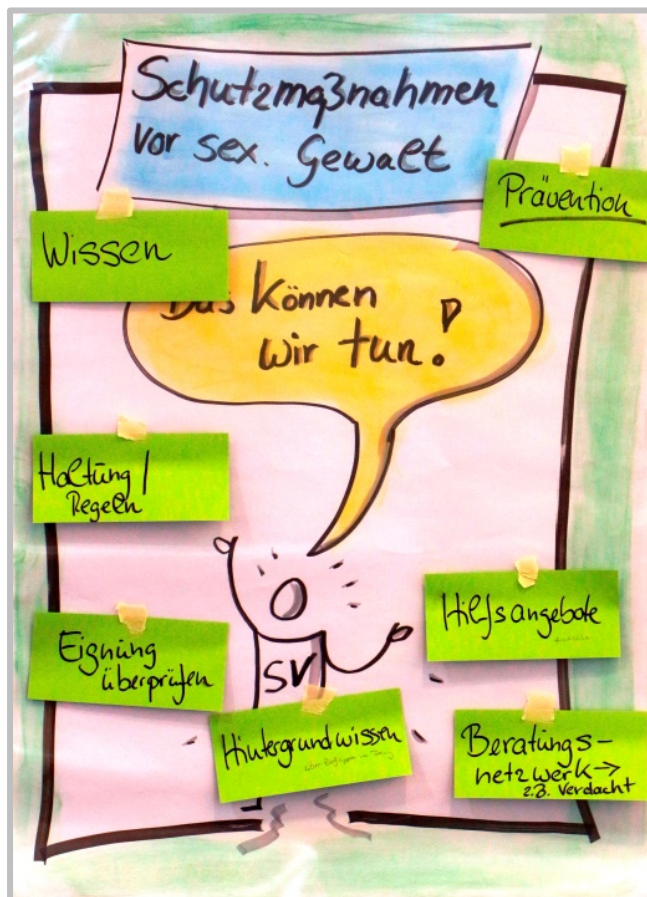 Schutzmaßnahmen
vor sex. Gewalt
Prävention
Wissen
Das können
wir tun!
Haltung /
Regeln
Hilfsangebote
Eignung
überprüfen
SV
Hintergrundwissen
Beratungs-
netzwerk →
z.B. Verdacht